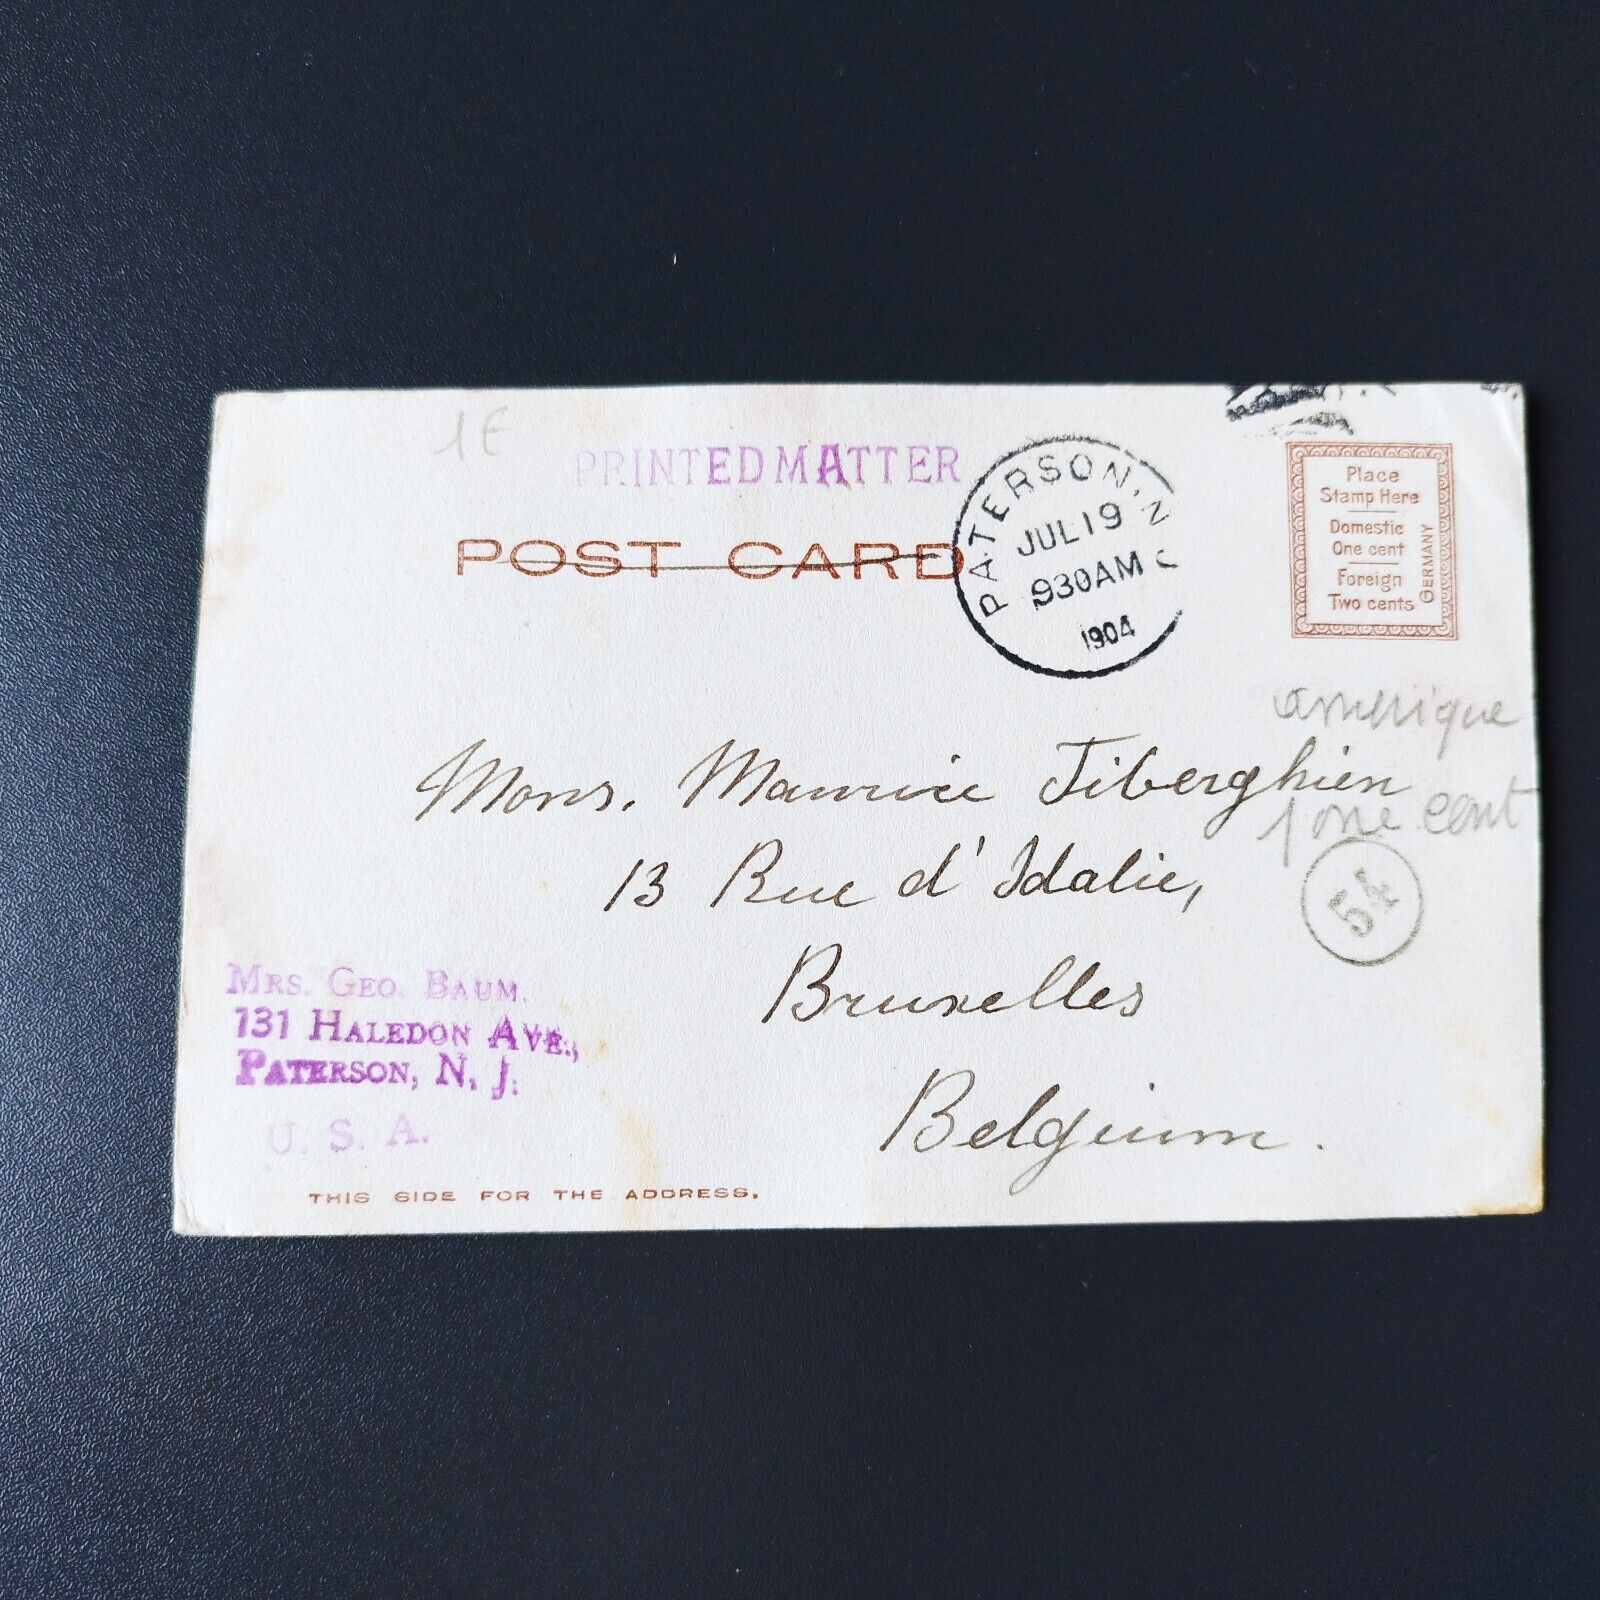 1E
PRINTED MATTER
POST CARD
PATERSON, N
JUL 19
930AM
1904
Place
Stamp Here
Domestic
One cent
Foreign
Two cents
GERMANY
amerique
1 one cent
54
Mons. Maurice Tiberghien
13 Rue d'Idalie,
Bruxelles
Belgium.
MRS. GEO. BAUM.
131 HALEDON AVE.,
PATERSON, N. J.
U. S. A.
THIS SIDE FOR THE ADDRESS.